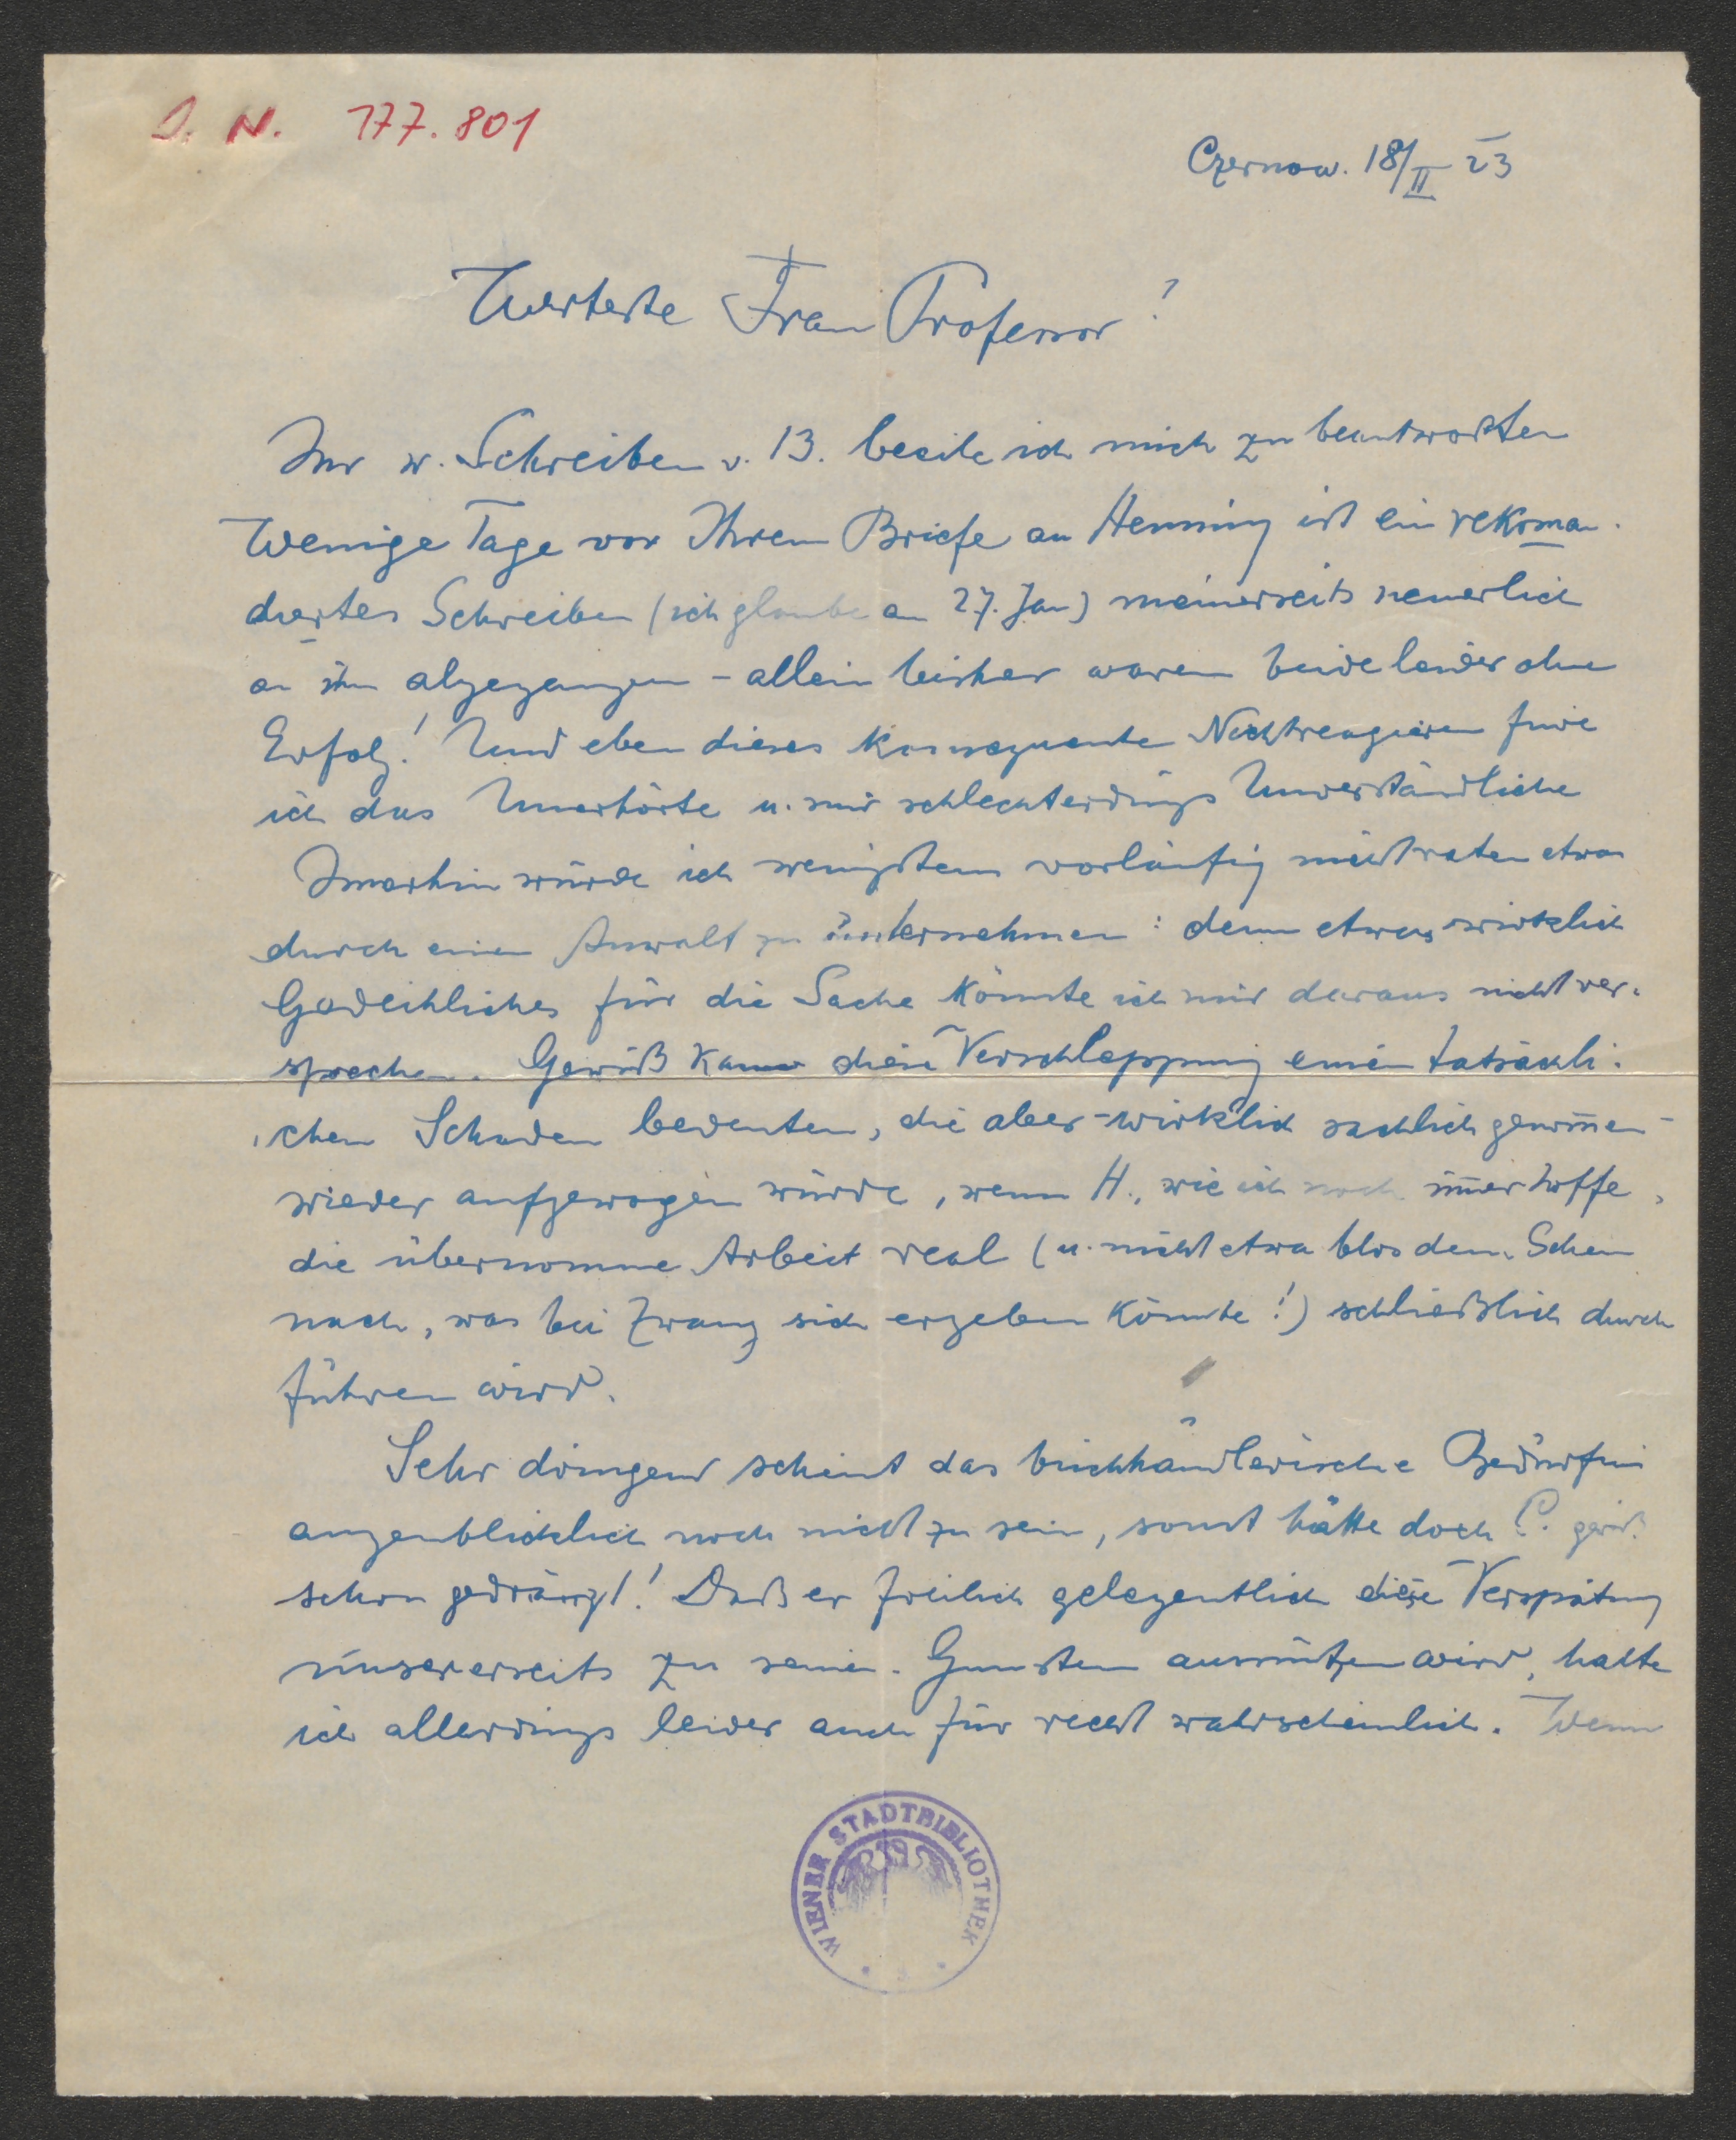 I. N. 177.801
Czernow. 18/II 23
Werteste Frau Professor!
Ihr w. Schreiben v. 13. beeile ich mich zu beantworten
Wenige Tage vor Ihrem Briefe an Henning ist ein rekoman-
diertes Schreiben (ich glaube am 27. Jan) meinerseits neuerlich
an ihn abgegangen - allein bisher waren beide leider ohne
Erfolg! Und eben dieses konsequente Nichtreagieren finde
ich das Unerhörte u. mir schlechterdings Unverständliche
Imerhin würde ich wenigstens vorläufig nicht raten etwas
durch einen Anwalt zu unternehmen: denn etwas wirklich
Gedeihliches für die Sache könnte ich mir daraus nicht ver-
sprechen. Gewiß kann diese Verschleppung einen tatsächli-
chen Schaden bedeuten, die aber - wirklich sachlich genom̄en -
wieder aufgewogen würde, wenn H., wie ich noch im̄er hoffe,
die übernomme Arbeit real (u. nicht etwa blos dem Schein
nach, was bei Zwang sich ergeben könnte!) schließlich durch
führen wird.
Sehr dringend scheint das buchhändlerische Bedürfnis
augenblicklich noch nicht zu sein, sonst hätte doch C. gewiß
schon gedrängt! Daß er freilich gelegentlich diese Verspätung
unsererseits zu seinen Gunsten ausnützen wird, halte
ich allerdings leider auch für recht wahrscheinlich. Wenn
WIENER STADTBIBLIOTHEK